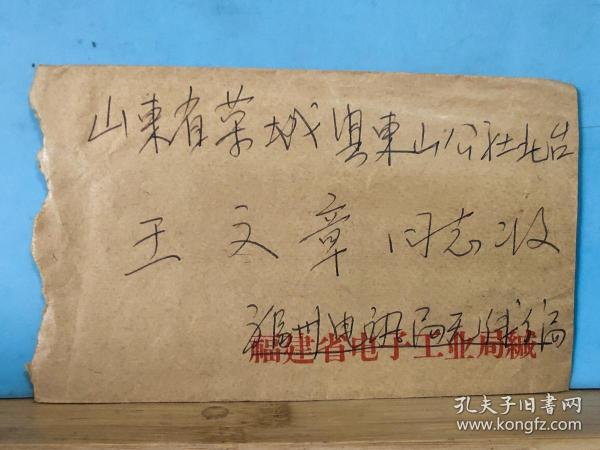 山東省荣城県東山公社北台
王文章同志收
福州电讯局无线分局
福建省电子工业局缄
孔夫子旧书网
www.kongfz.com